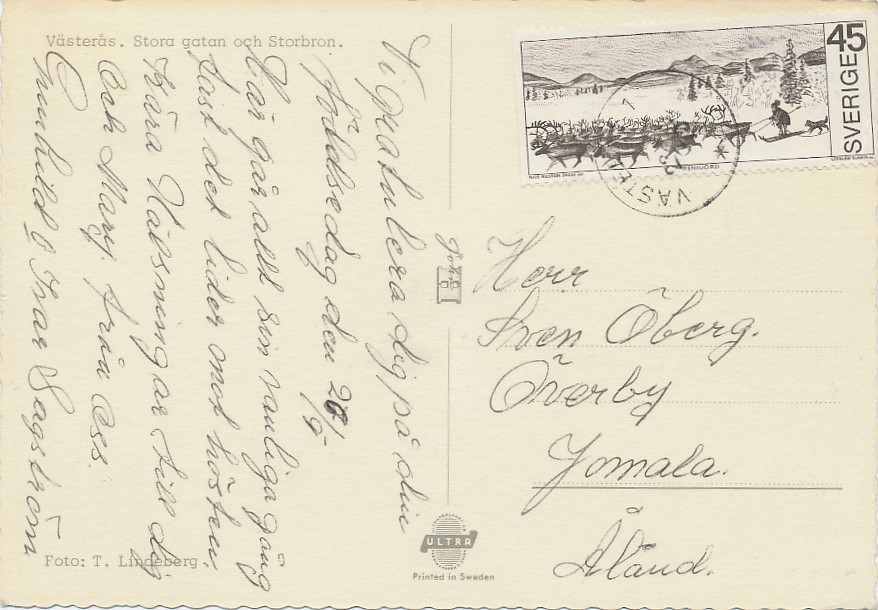 Västerås. Stora gatan och Storbron.
Vi gratulera dig på din
födelsedag den 20/9.
Här går allt sin vanliga gång
fast det lider mot hösten.
Kära Hälsningar till dig
och Mary från oss.
Gunhild o Ivar Sagström
Foto: T. Lindeberg.
ULTRA
Printed in Sweden
SVERIGE 45
RENHJORD
VÄSTERÅS
Herr
Sven Öberg.
Överby
Jomala.
Åland.